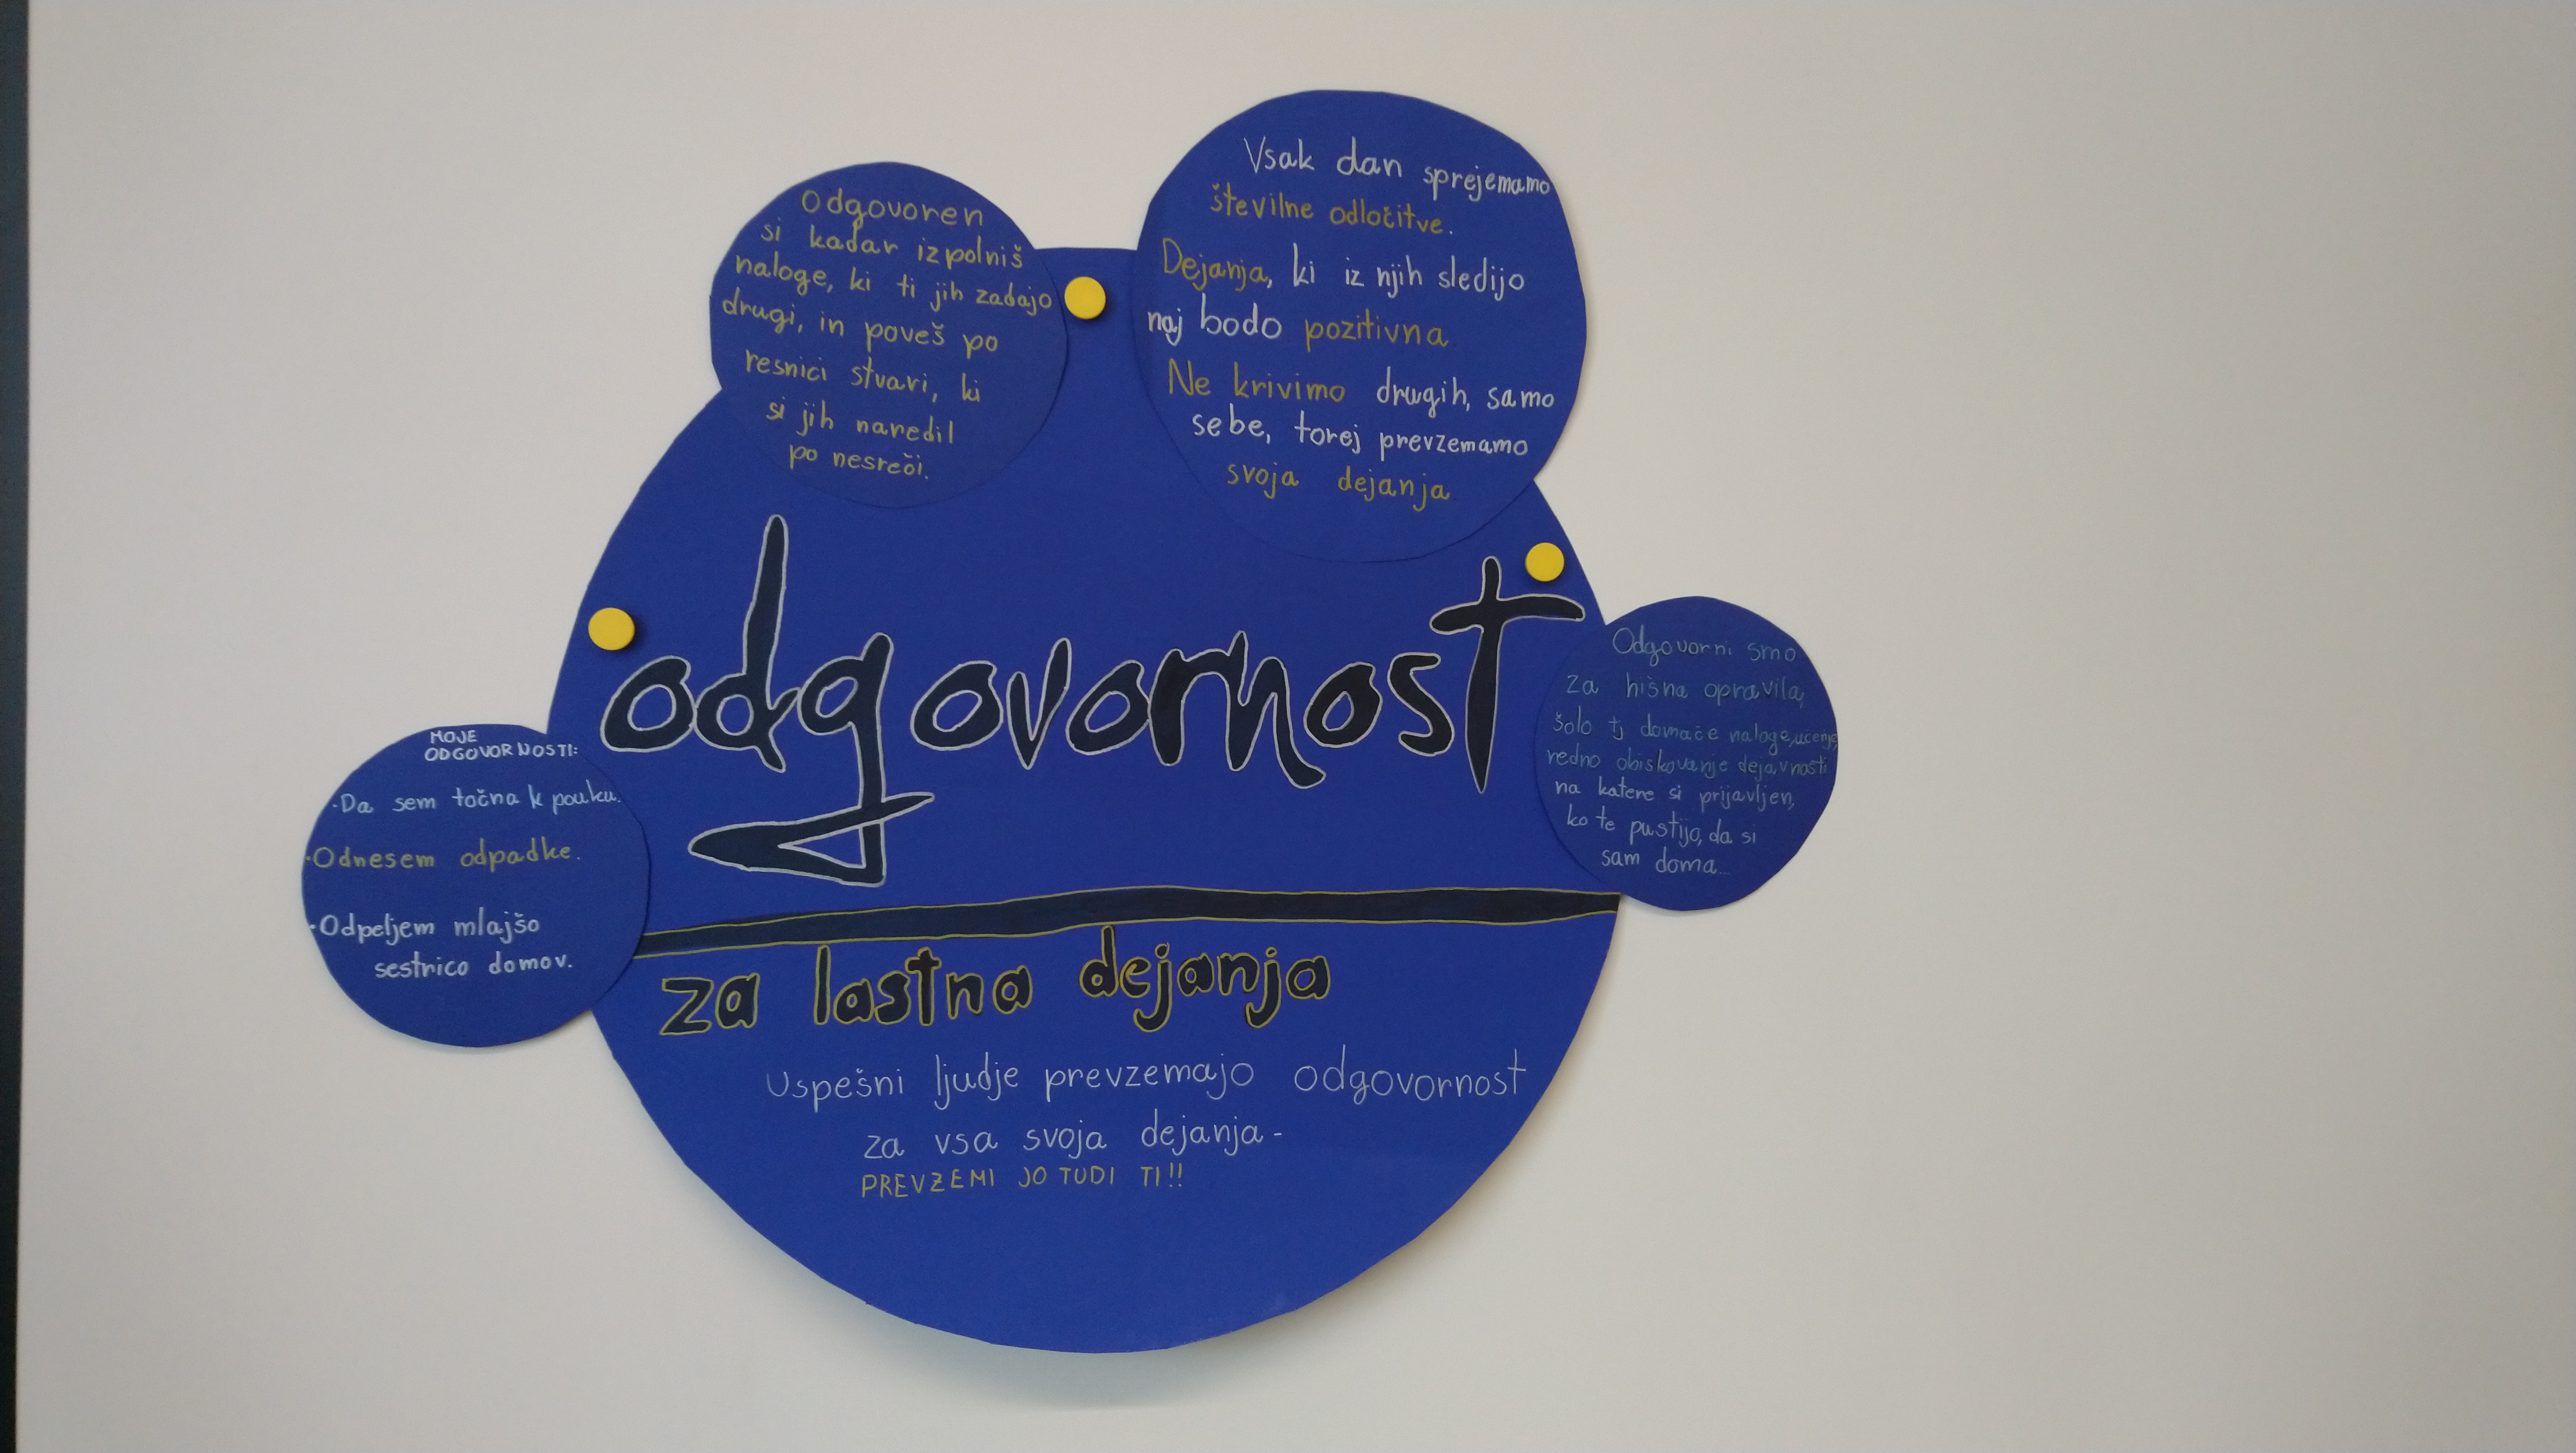 Odgovoren
si kadar izpolniš
naloge, ki ti jih zadajo
drugi, in poveš po
resnici stvari, ki
si jih naredil
po nesreči.
Vsak dan sprejemamo
številne odločitve.
Dejanja, ki iz njih sledijo
naj bodo pozitivna
Ne krivimo drugih, samo
sebe, torej prevzemamo
svoja dejanja
odgovornost
MOJE
ODGOVORNOSTI:
·Da sem točna k pouku.
·Odnesem odpadke.
·Odpeljem mlajšo
sestrico domov.
Odgovorni smo
za hišna opravila,
šolo tj domače naloge, učenje,
redno obiskovanje dejavnosti
na katere si prijavljen,
ko te pustijo, da si
sam doma...
za lastna dejanja
Uspešni ljudje prevzemajo odgovornost
za vsa svoja dejanja-
PREVZEMI JO TUDI TI!!